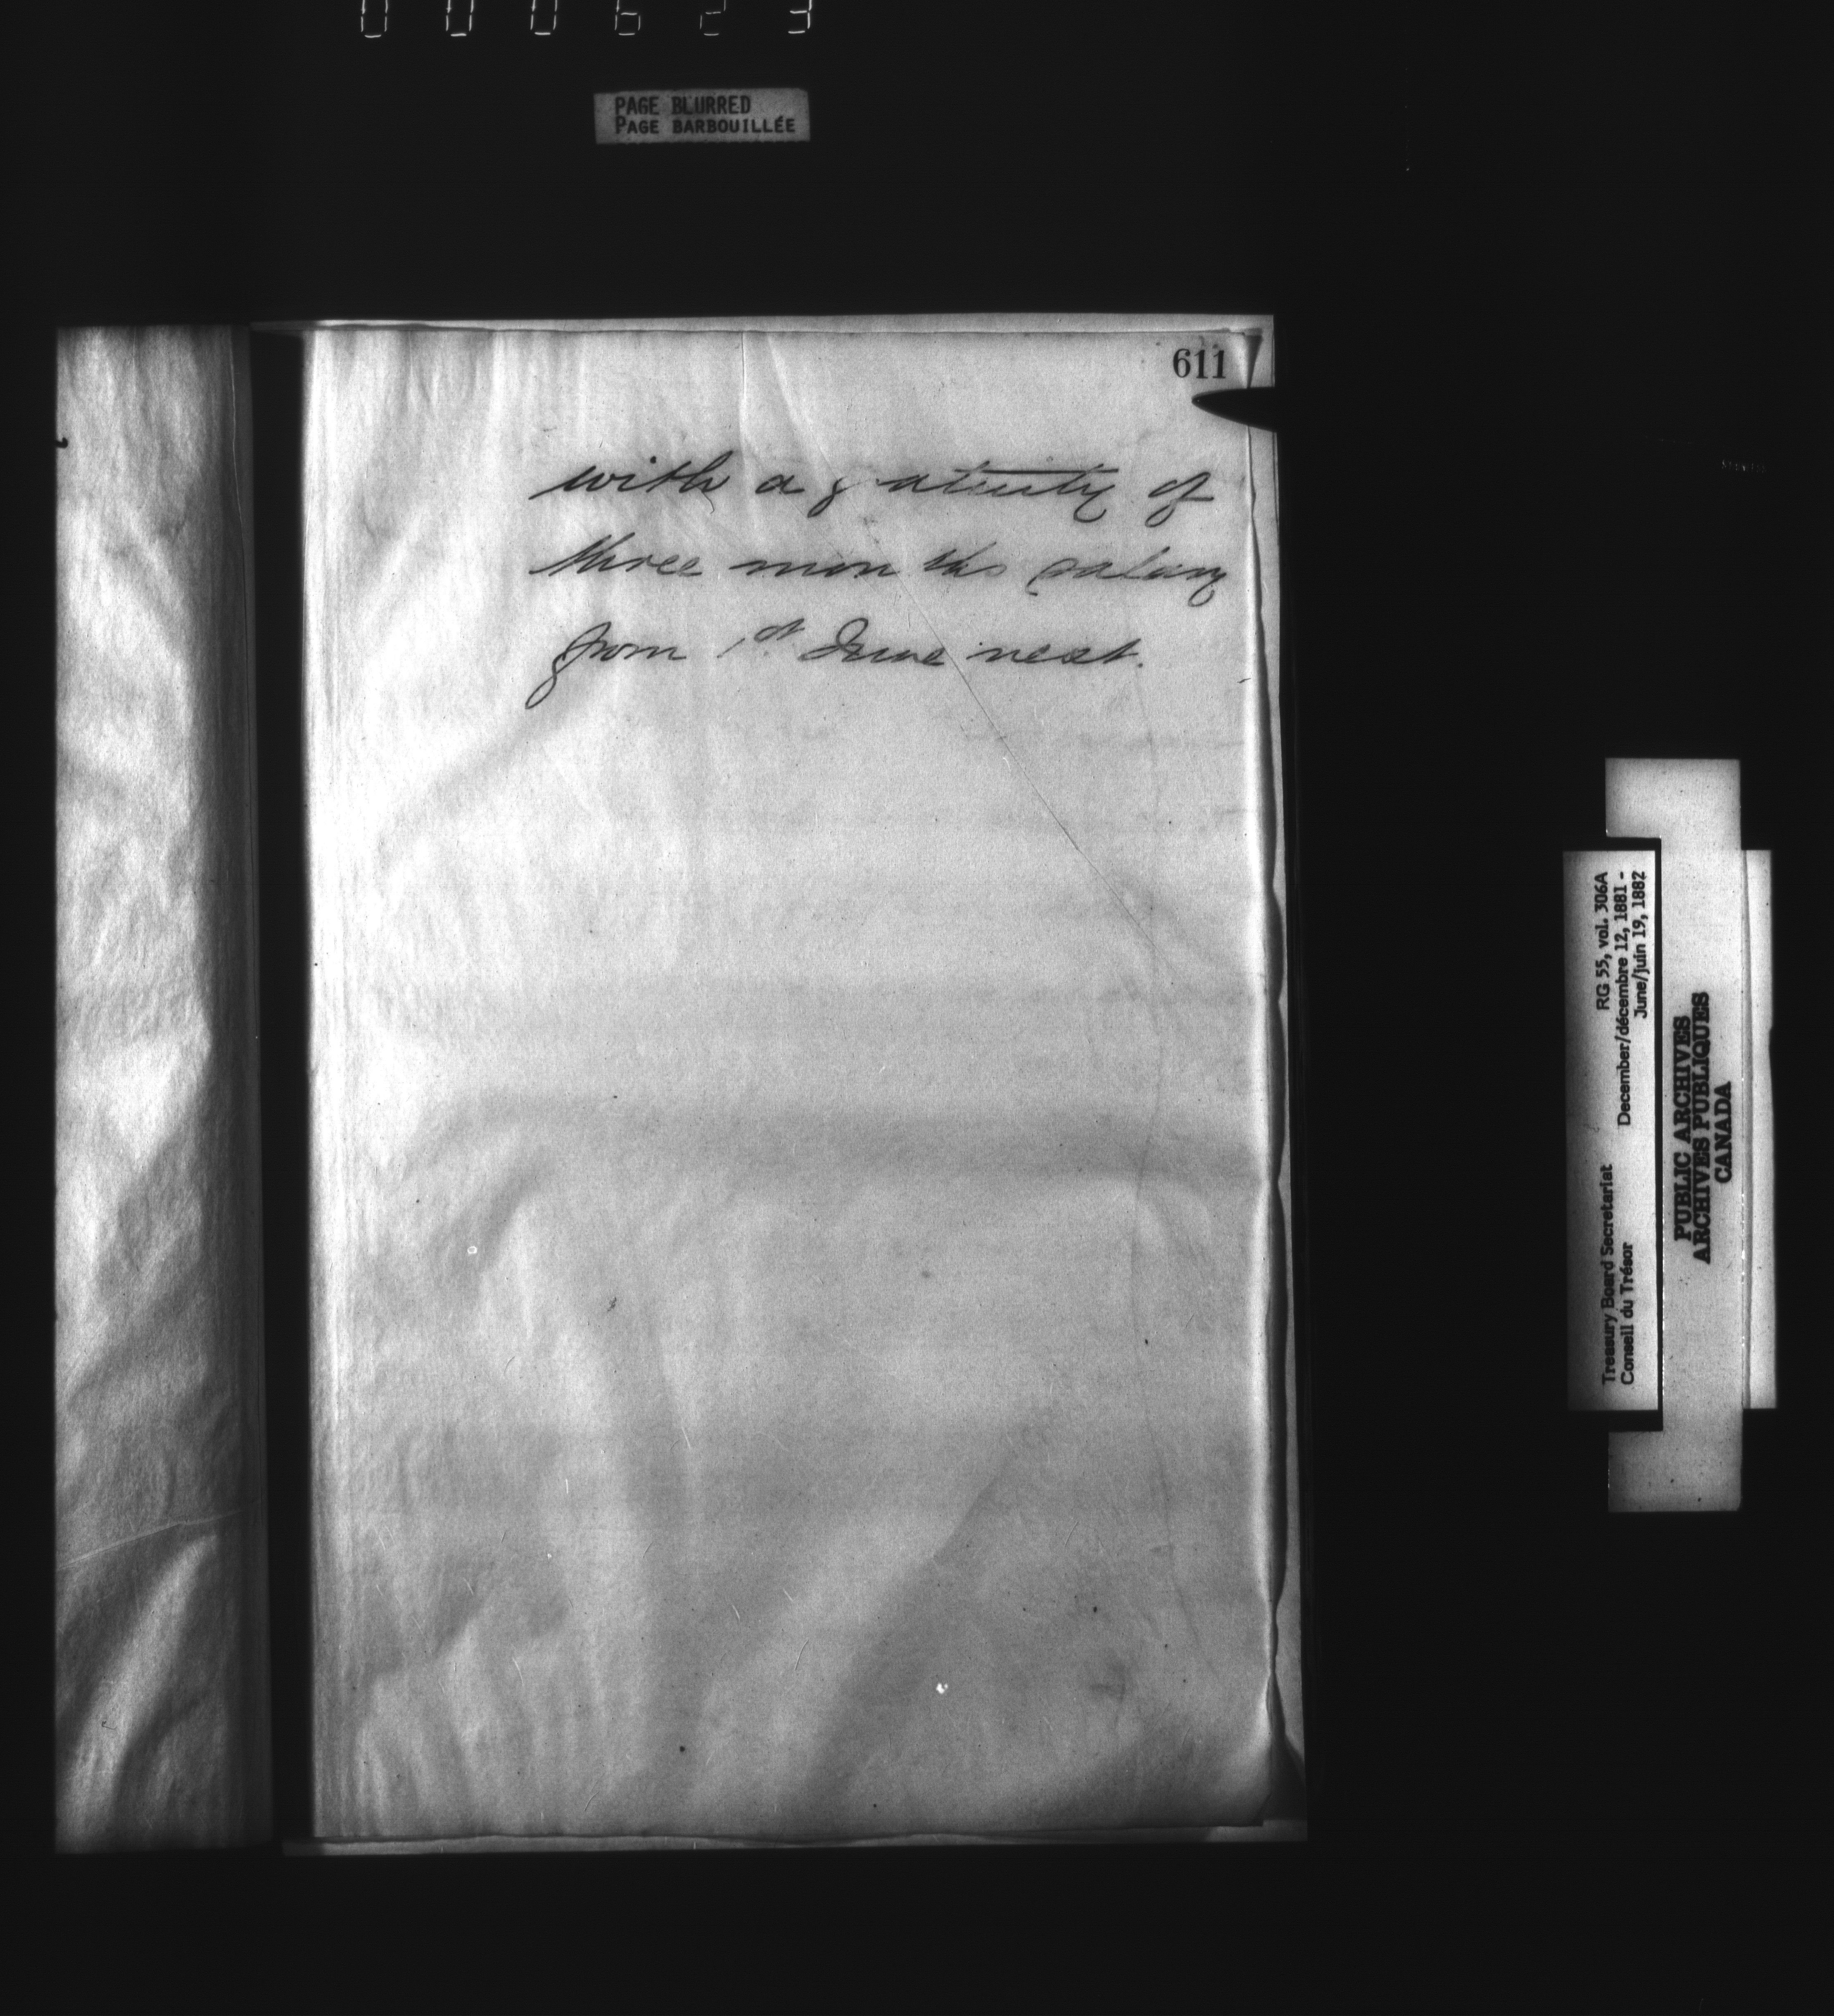 000623
PAGE BLURRED
PAGE BARBOUILLÉE
611
with a gratuity of
three months salary
from 1st June next.
Treasury Board Secretariat RG 55, vol. 306A
Conseil du Trésor December/décembre 12, 1881 -
June/juin 19, 1882
PUBLIC ARCHIVES
ARCHIVES PUBLIQUES
CANADA